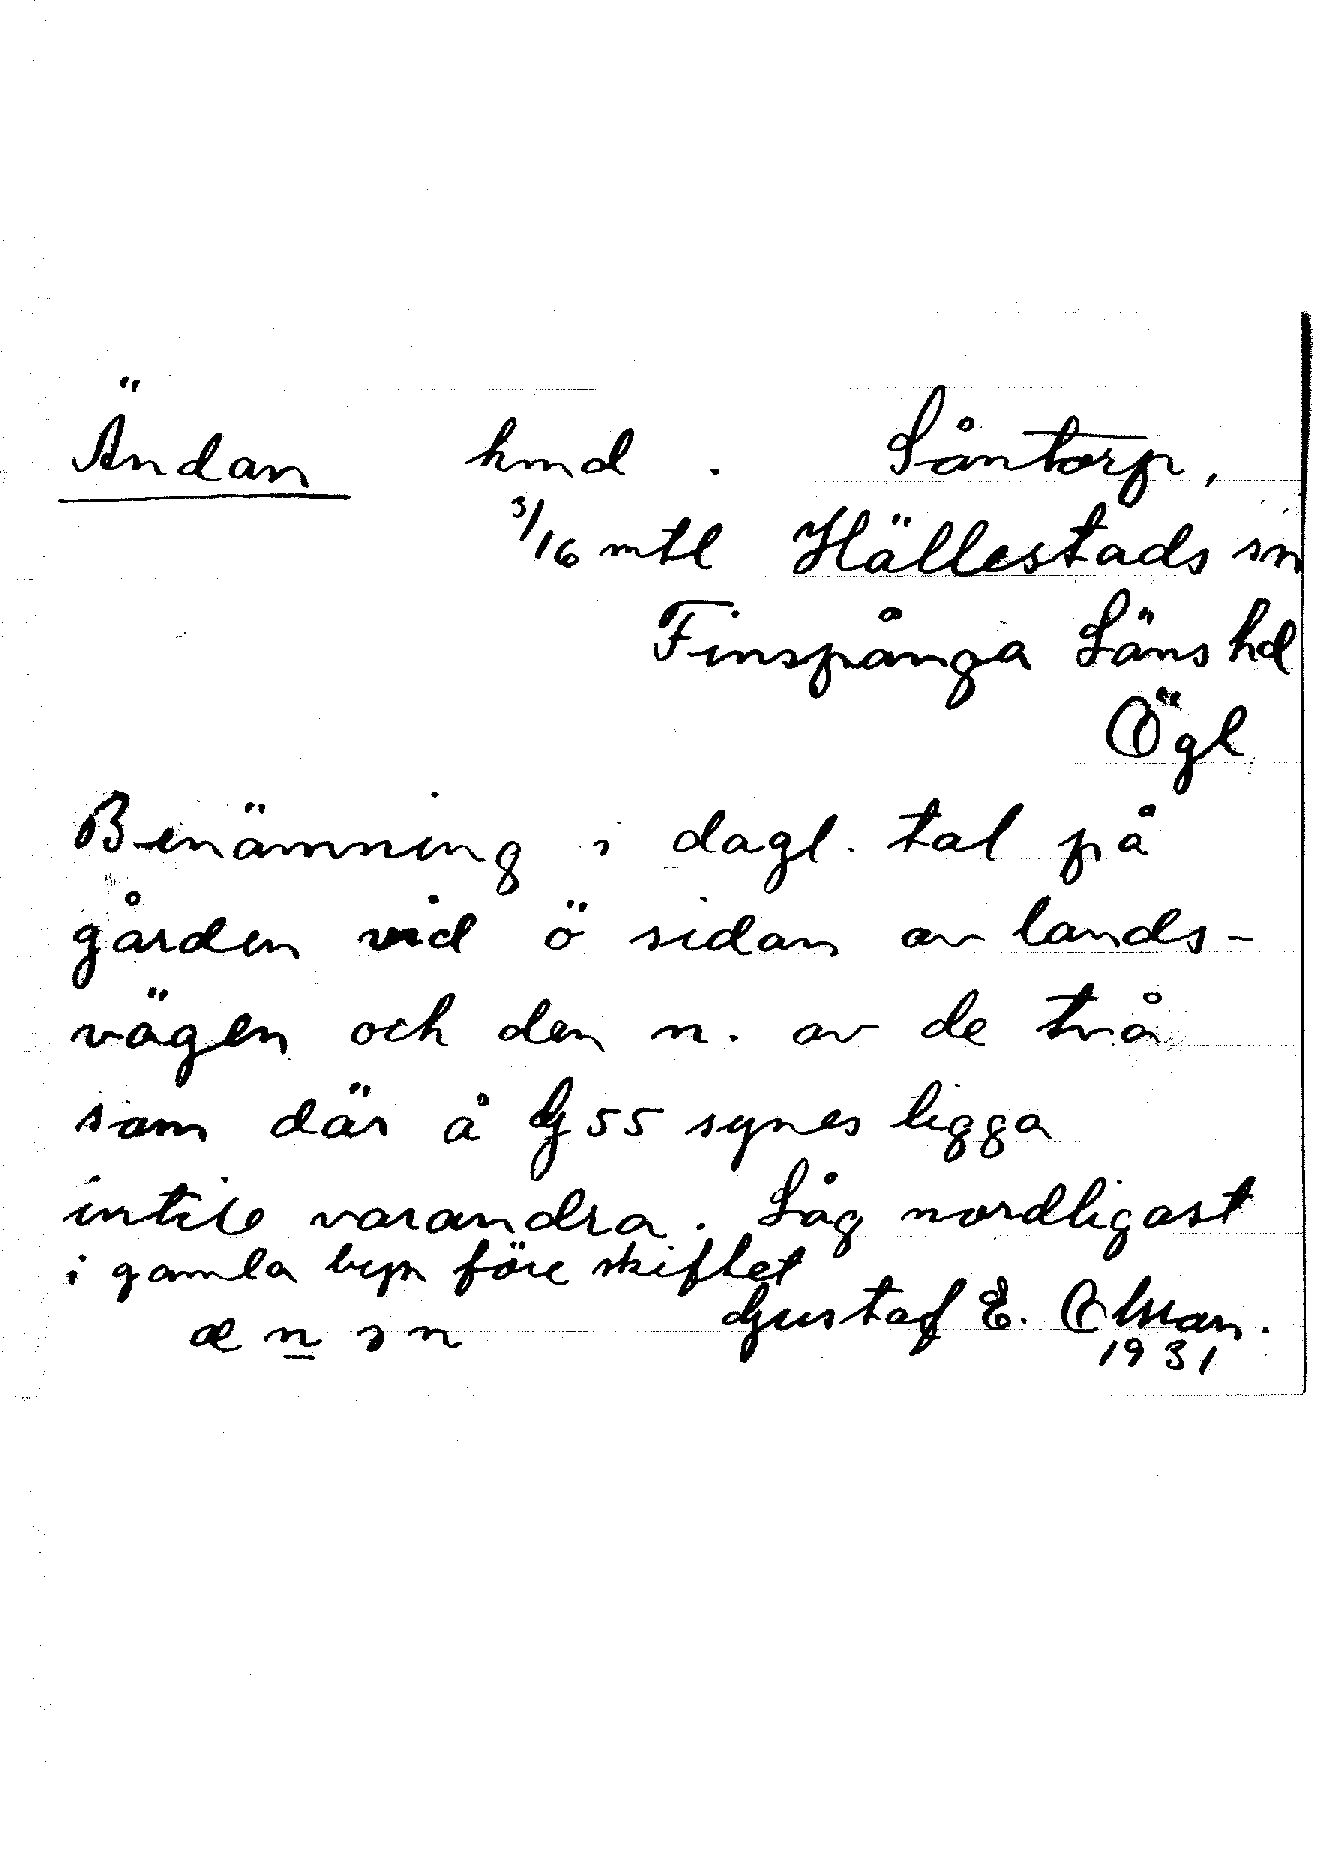 Ändan hmd. Låntorp,
3/16 mtl Hällestads sn
Finspånga Läns hd
Ögl
Benämning i dagl. tal på
gården vid ö sidan av lands-
vägen och den n. av de två
som där å G 55 synes ligga
intill varandra. Låg nordligast
i gamla byn före skiftet
æ n ə n Gustaf E. Olsson.
1931